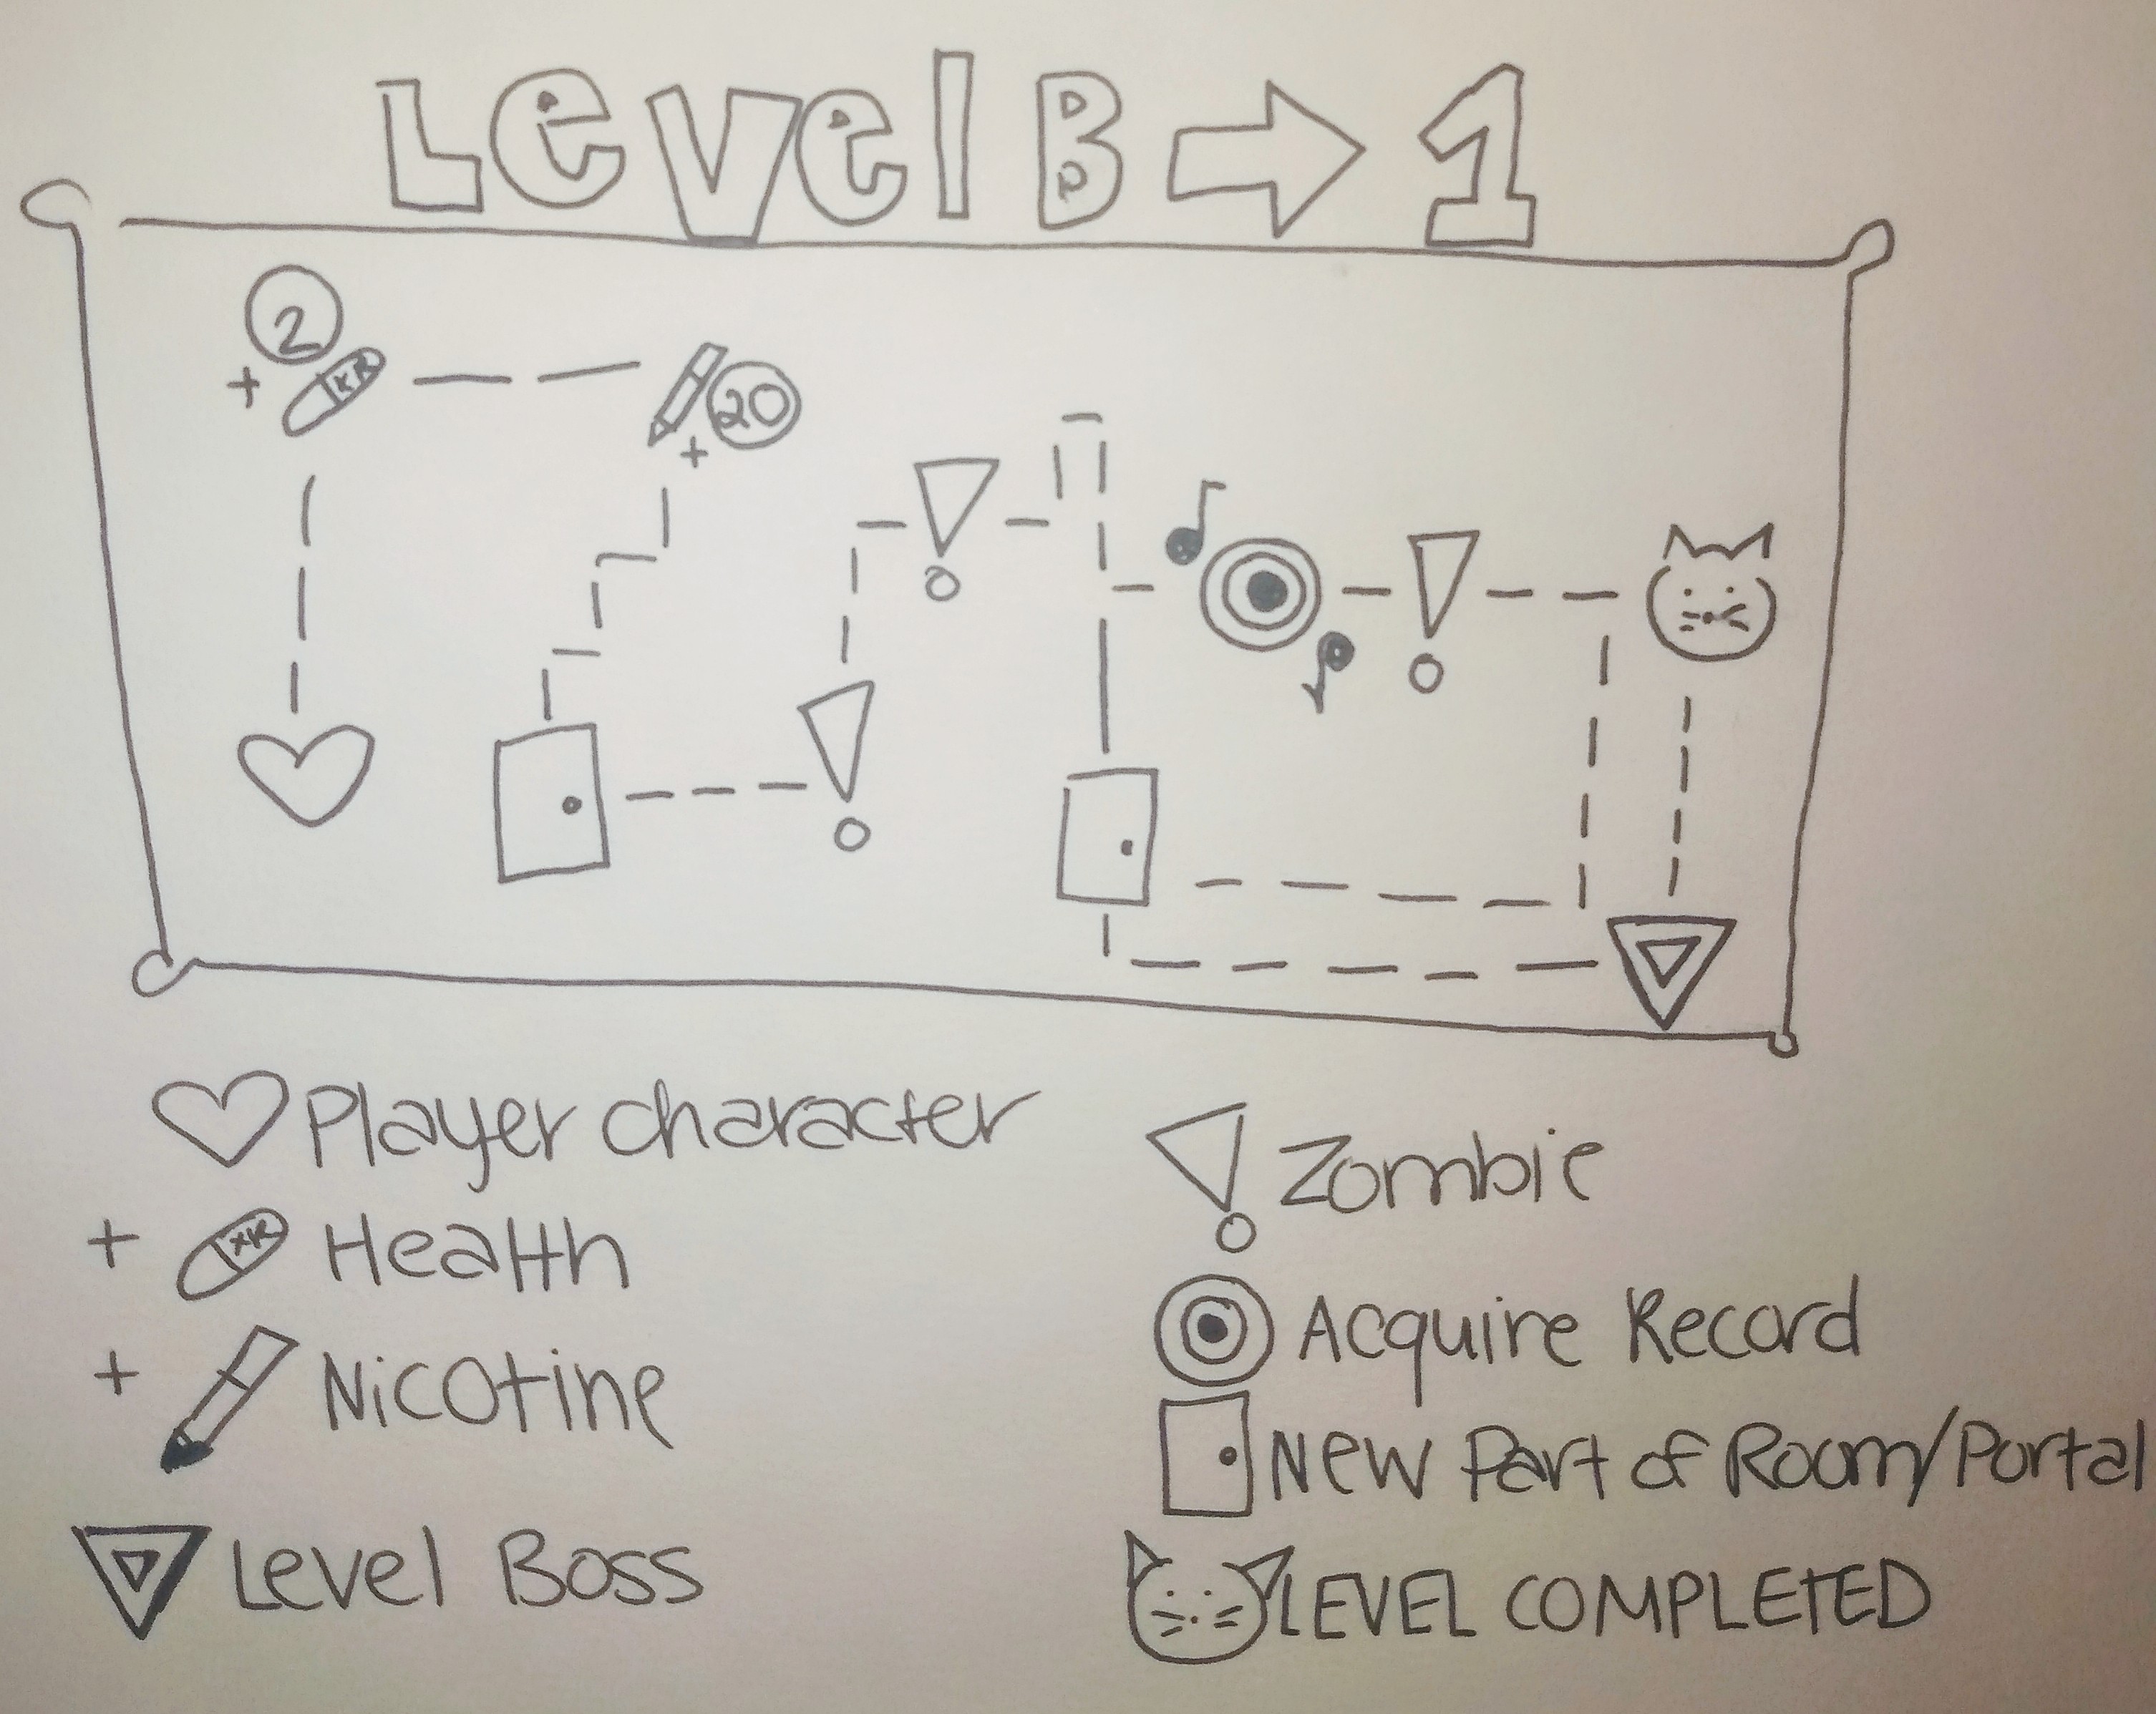 Level B → 1
2
+
20
+
Player character
+ Health
+ Nicotine
Level Boss
Zombie
Acquire Record
New Part of Room/Portal
LEVEL COMPLETED